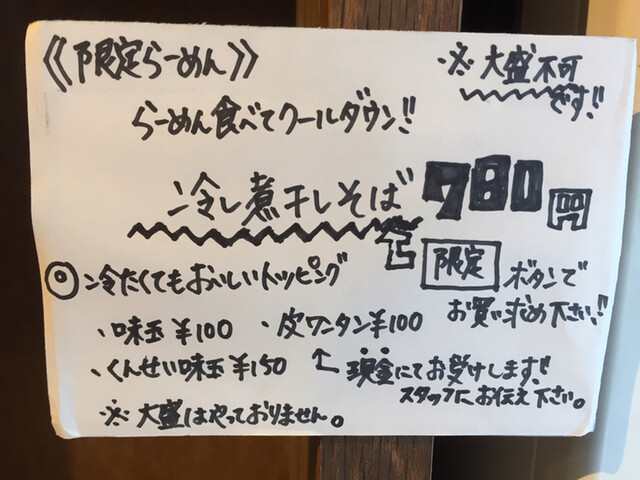 《限定らーめん》
※大盛不可です!!
らーめん食べてクールダウン!!
冷し煮干しそば 780円
限定 ボタンでお買い求め下さい!!
◎冷たくてもおいしいトッピング
・味玉¥100 ・皮ワンタン¥100
・くんせい味玉¥150
現金にてお受けします!!
スタッフにお伝え下さい。
※大盛はやっておりません。